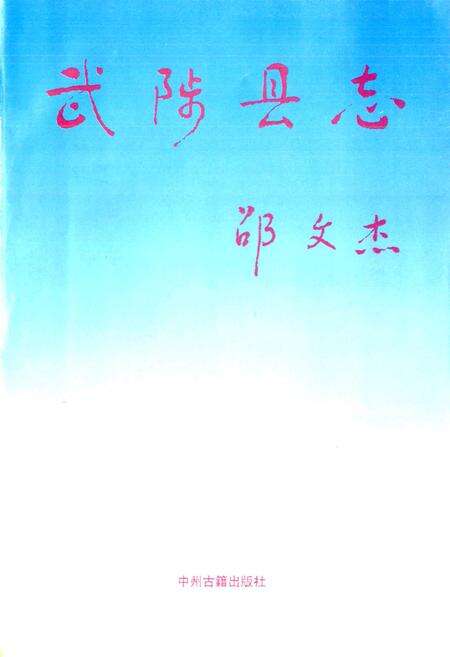 武陟县志
邵文杰
中州古籍出版社